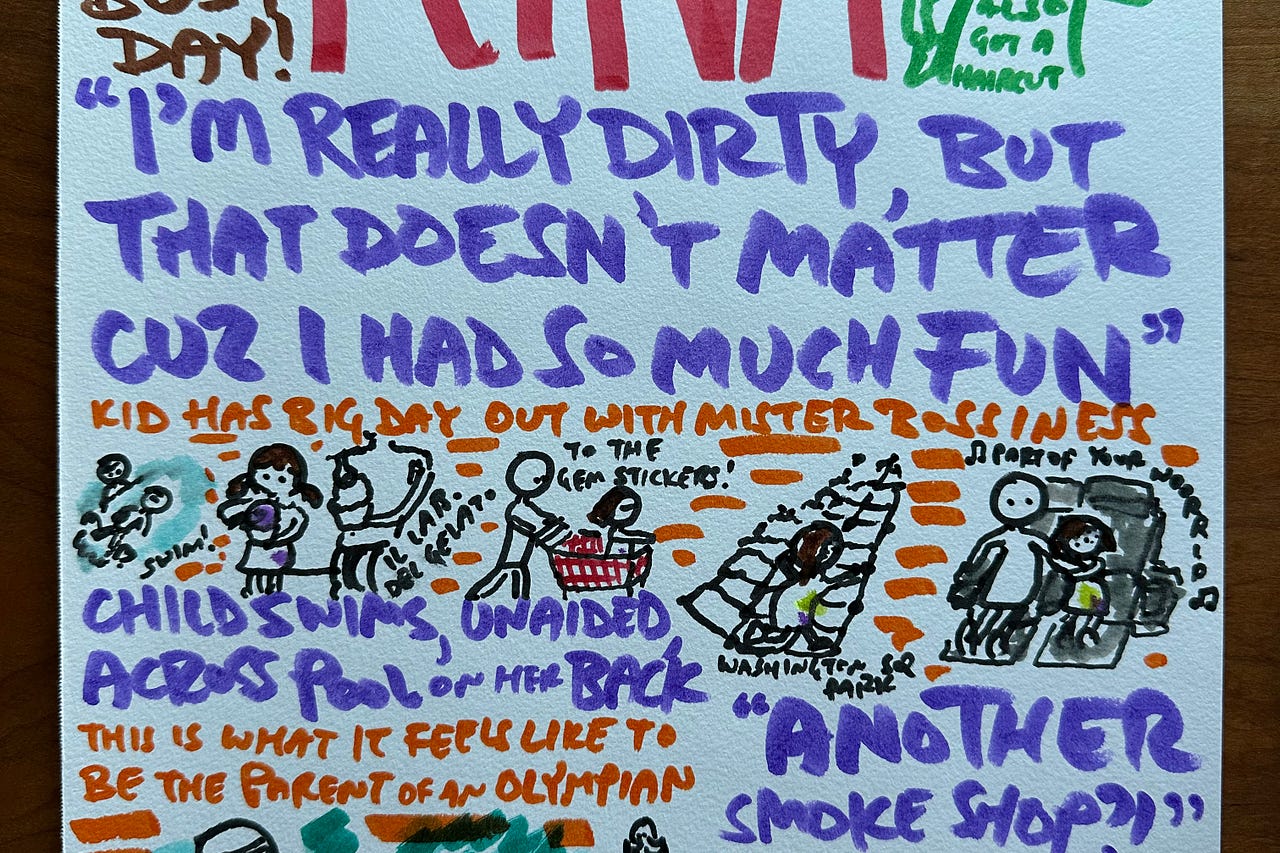 DAY!
ALSO
GOT A
HAIRCUT
"I'M REALLY DIRTY, BUT
THAT DOESN'T MATTER
CUZ I HAD SO MUCH FUN"
KID HAS BIG DAY OUT WITH MISTER BOSSINESS
SWIM!
IL LAB.
DEL GELATO
TO THE
GEM STICKERS!
WASHINGTON SQ
PARK
♫ PART OF YOUR WOORRRLD ♫
CHILD SWIMS, UNAIDED,
ACROSS POOL ON HER BACK
THIS IS WHAT IT FEELS LIKE TO
BE THE PARENT OF AN OLYMPIAN
"ANOTHER
SMOKE SHOP?!"